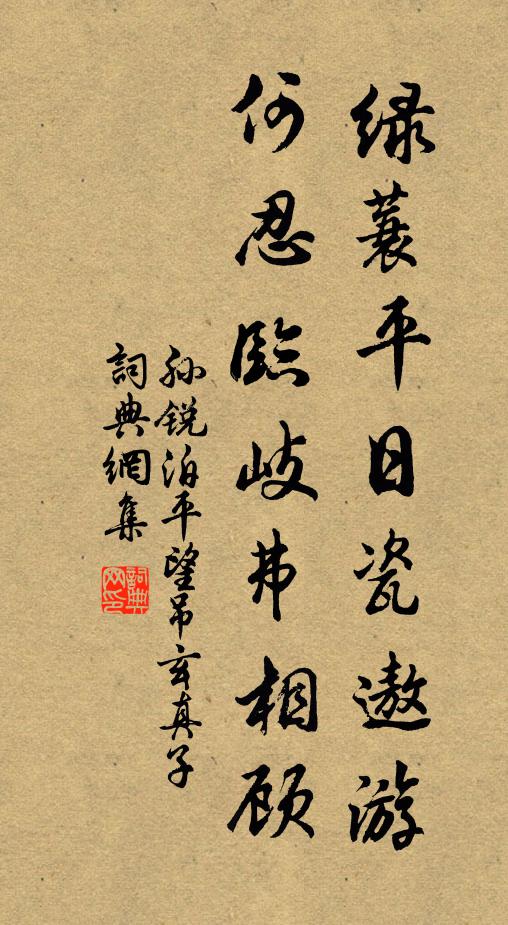 绿蓑平日瓷遨游
何忍临岐弗相顾
孙锐泊平望吊玄真子
詞典網集
詞典网印